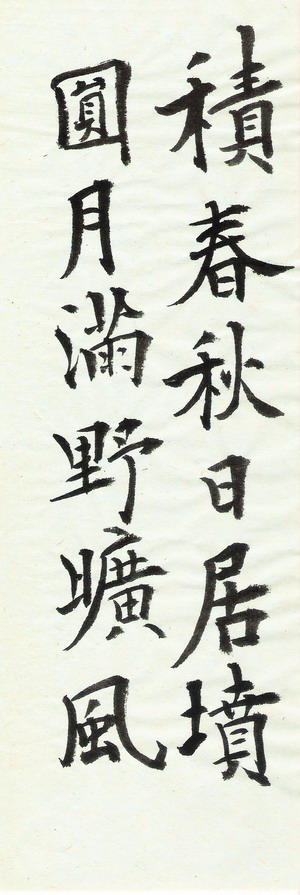 積春秋日居墳
圓月滿野曠風